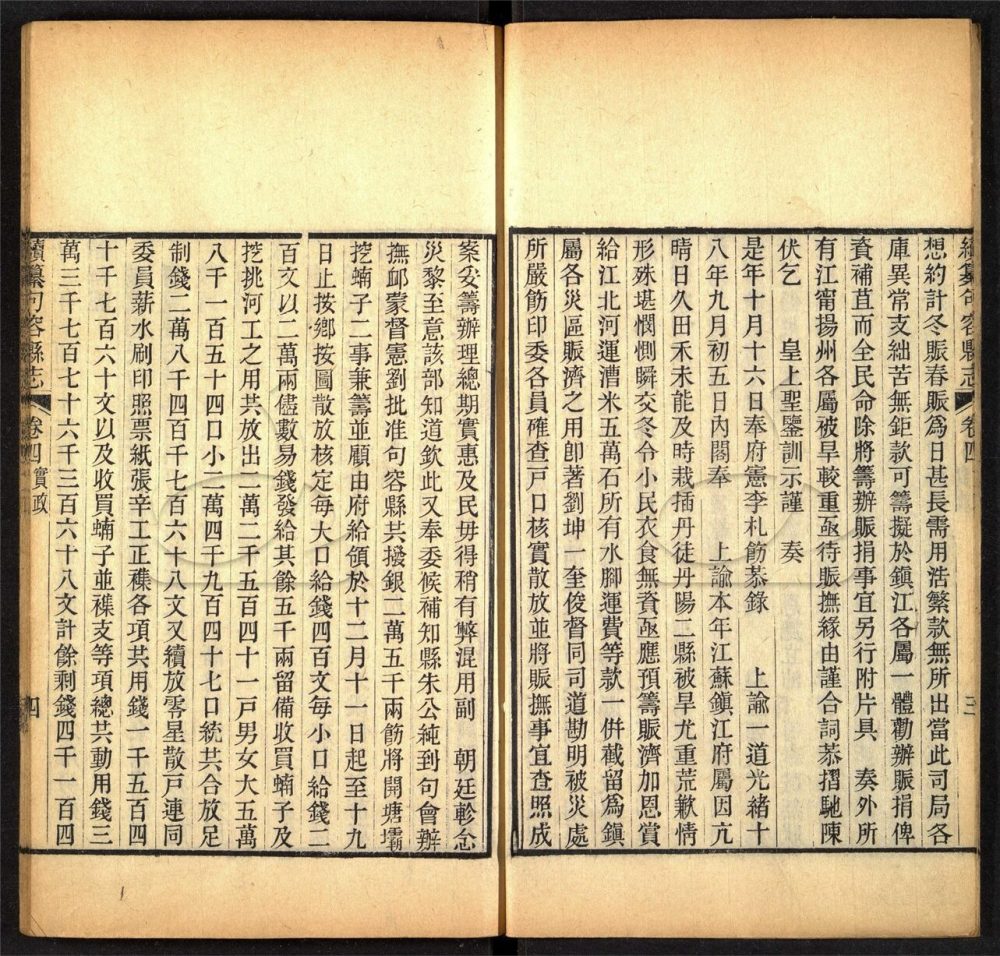 續纂句容縣志 卷四 三
想約計冬賑春賑爲日甚長需用浩繁款無所出當此司局各
庫異常支絀苦無鉅款可籌擬於鎮江各屬一體勸辦賑捐俾
資補苴而全民命除將籌辦賑捐事宜另行附片具 奏外所
有江甯揚州各屬被旱較重亟待賑撫緣由謹合詞恭摺馳陳
伏乞 皇上聖鑒訓示謹 奏
是年十月十六日奉府憲李札飭恭錄 上諭一道光緒十
八年九月初五日內閣奉 上諭本年江蘇鎮江府屬因亢
晴日久田禾未能及時栽插丹徒丹陽二縣被旱尤重荒歉情
形殊堪憫惻瞬交冬令小民衣食無資亟應預籌賑濟加恩賞
給江北河運漕米五萬石所有水腳運費等款一併截留爲鎮
屬各災區賑濟之用卽著劉坤一奎俊督同司道勘明被災處
所嚴飭印委各員確查戶口核實散放並將賑撫事宜查照成
案妥籌辦理總期實惠及民毋得稍有弊混用副 朝廷軫念
災黎至意該部知道欽此又奉委候補知縣朱公純到句會辦
撫卹蒙督憲劉批准句容縣共撥銀二萬五千兩飭將開塘壩
挖蝻子二事兼籌並顧由府給領於十二月十一日起至十九
日止按鄉按圖散放核定每大口給錢四百文每小口給錢二
百文以二萬兩儘數易錢發給其餘五千兩留備收買蝻子及
挖挑河工之用共放出一萬二千五百四十一戶男女大五萬
八千一百五十四口小二萬四千九百四十七口統共合放足
制錢二萬八千四百千七百六十八文又續放零星散戶連同
委員薪水刷印照票紙張辛工正襍各項共用錢一千五百四
十千七百六十文以及收買蝻子並襍支等項總共動用錢三
萬三千七百七十六千三百六十八文計餘剩錢四千一百四
續纂句容縣志 卷四 實政 四